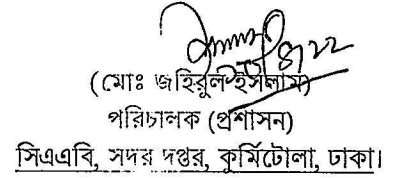 (মোঃ জহিরুল ইসলাম)
পরিচালক (প্রশাসন)
সিএএবি, সদর দপ্তর, কুর্মিটোলা, ঢাকা।